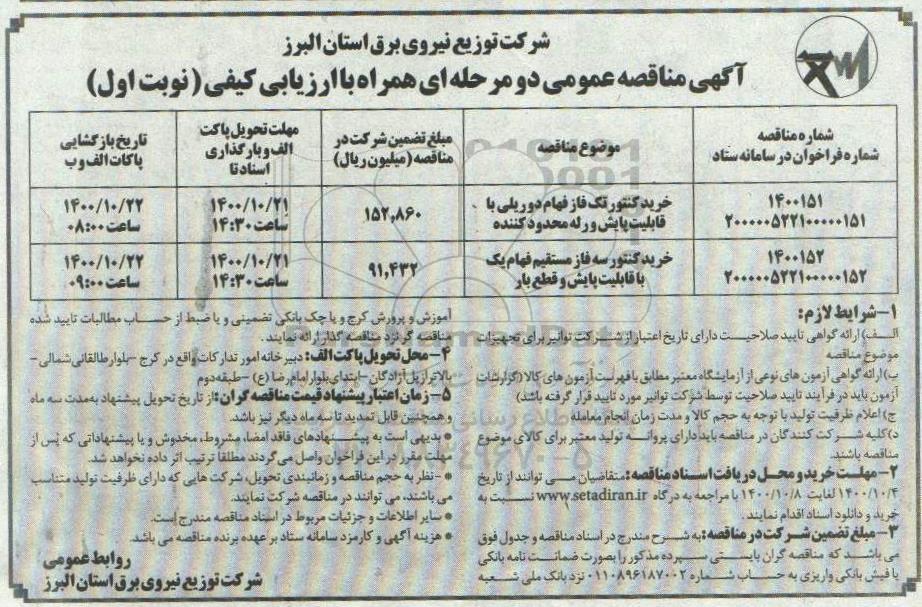 شرکت توزیع نیروی برق استان البرز
آگهی مناقصه عمومی دو مرحله ای همراه با ارزیابی کیفی (نوبت اول)
شماره مناقصه
شماره فراخوان در سامانه ستاد
موضوع مناقصه
مبلغ تضمین شرکت در
مناقصه (میلیون ریال)
مهلت تحویل پاکت
الف و بارگذاری
اسناد تا
تاریخ بازگشایی
پاکات الف و ب
۱۴۰۰۱۵۱
۲۰۰۰۰۰۵۲۲۱۰۰۰۰۱۵۱
خرید کنتور تک فاز فهام دو ریلی با
قابلیت پایش و رله محدود کننده
۱۵۲,۸۶۰
۱۴۰۰/۱۰/۲۱
ساعت ۱۴:۳۰
۱۴۰۰/۱۰/۲۲
ساعت ۰۸:۰۰
۱۴۰۰۱۵۲
۲۰۰۰۰۰۵۲۲۱۰۰۰۰۱۵۲
خرید کنتور سه فاز مستقیم فهام یک
با قابلیت پایش و قطع بار
۹۱,۴۳۲
۱۴۰۰/۱۰/۲۱
ساعت ۱۴:۳۰
۱۴۰۰/۱۰/۲۲
ساعت ۰۹:۰۰
۱- شرایط لازم:
الف) ارائه گواهی تایید صلاحیت دارای تاریخ اعتبار از شرکت توانیر برای تجهیزات
موضوع مناقصه
ب) ارائه گواهی آزمون های نوعی از آزمایشگاه معتبر مطابق با فهرست آزمون های کالا (گزارشات
آزمون باید در فرآیند تایید صلاحیت توسط شرکت توانیر مورد تایید قرار گرفته باشد)
ج) اعلام ظرفیت تولید با توجه به حجم کالا و مدت زمان انجام معامله
د) کلیه شرکت کنندگان در مناقصه باید دارای پروانه تولید معتبر برای کالای موضوع
مناقصه باشند.
۲- مهلت خرید و محل دریافت اسناد مناقصه: متقاضیان می توانند از تاریخ
۱۴۰۰/۱۰/۴ لغایت ۱۴۰۰/۱۰/۸ با مراجعه به درگاه www.setadiran.ir نسبت به
خرید و دانلود اسناد اقدام نمایند.
۳- مبلغ تضمین شرکت در مناقصه: به شرح مندرج در اسناد مناقصه و جدول فوق
می باشد که مناقصه گران بایستی سپرده مذکور را بصورت ضمانت نامه بانکی
یا فیش بانکی واریزی به حساب شماره ۰۱۱۰۸۹۶۱۸۷۰۰۲ نزد بانک ملی شعبه
آموزش و پرورش کرج و یا چک بانکی تضمینی و یا ضبط از حساب مطالبات تایید شده
مناقصه گر نزد مناقصه گذار ارائه نمایند.
۴- محل تحویل پاکت الف: دبیرخانه امور تدارکات واقع در کرج - بلوار طالقانی شمالی-
بالاتر از پل آزادگان - ابتدای بلوار امام رضا (ع) - طبقه دوم
۵- زمان اعتبار پیشنهاد قیمت مناقصه گران: از تاریخ تحویل پیشنهاد به مدت سه ماه
و همچنین قابل تمدید تا سه ماه دیگر نیز باشد.
● بدیهی است به پیشنهادهای فاقد امضا، مشروط، مخدوش و یا پیشنهاداتی که پس از
مهلت مقرر در این فراخوان واصل می گردند مطلقا ترتیب اثر داده نخواهد شد.
● - نظر به حجم مناقصه و زمانبندی تحویل، شرکت هایی که دارای ظرفیت تولید متناسب
می باشند، می توانند در مناقصه شرکت نمایند.
● سایر اطلاعات و جزئیات مربوط در اسناد مناقصه مندرج است.
● هزینه آگهی و کارمزد سامانه ستاد بر عهده برنده مناقصه می باشد.
روابط عمومی
شرکت توزیع نیروی برق استان البرز